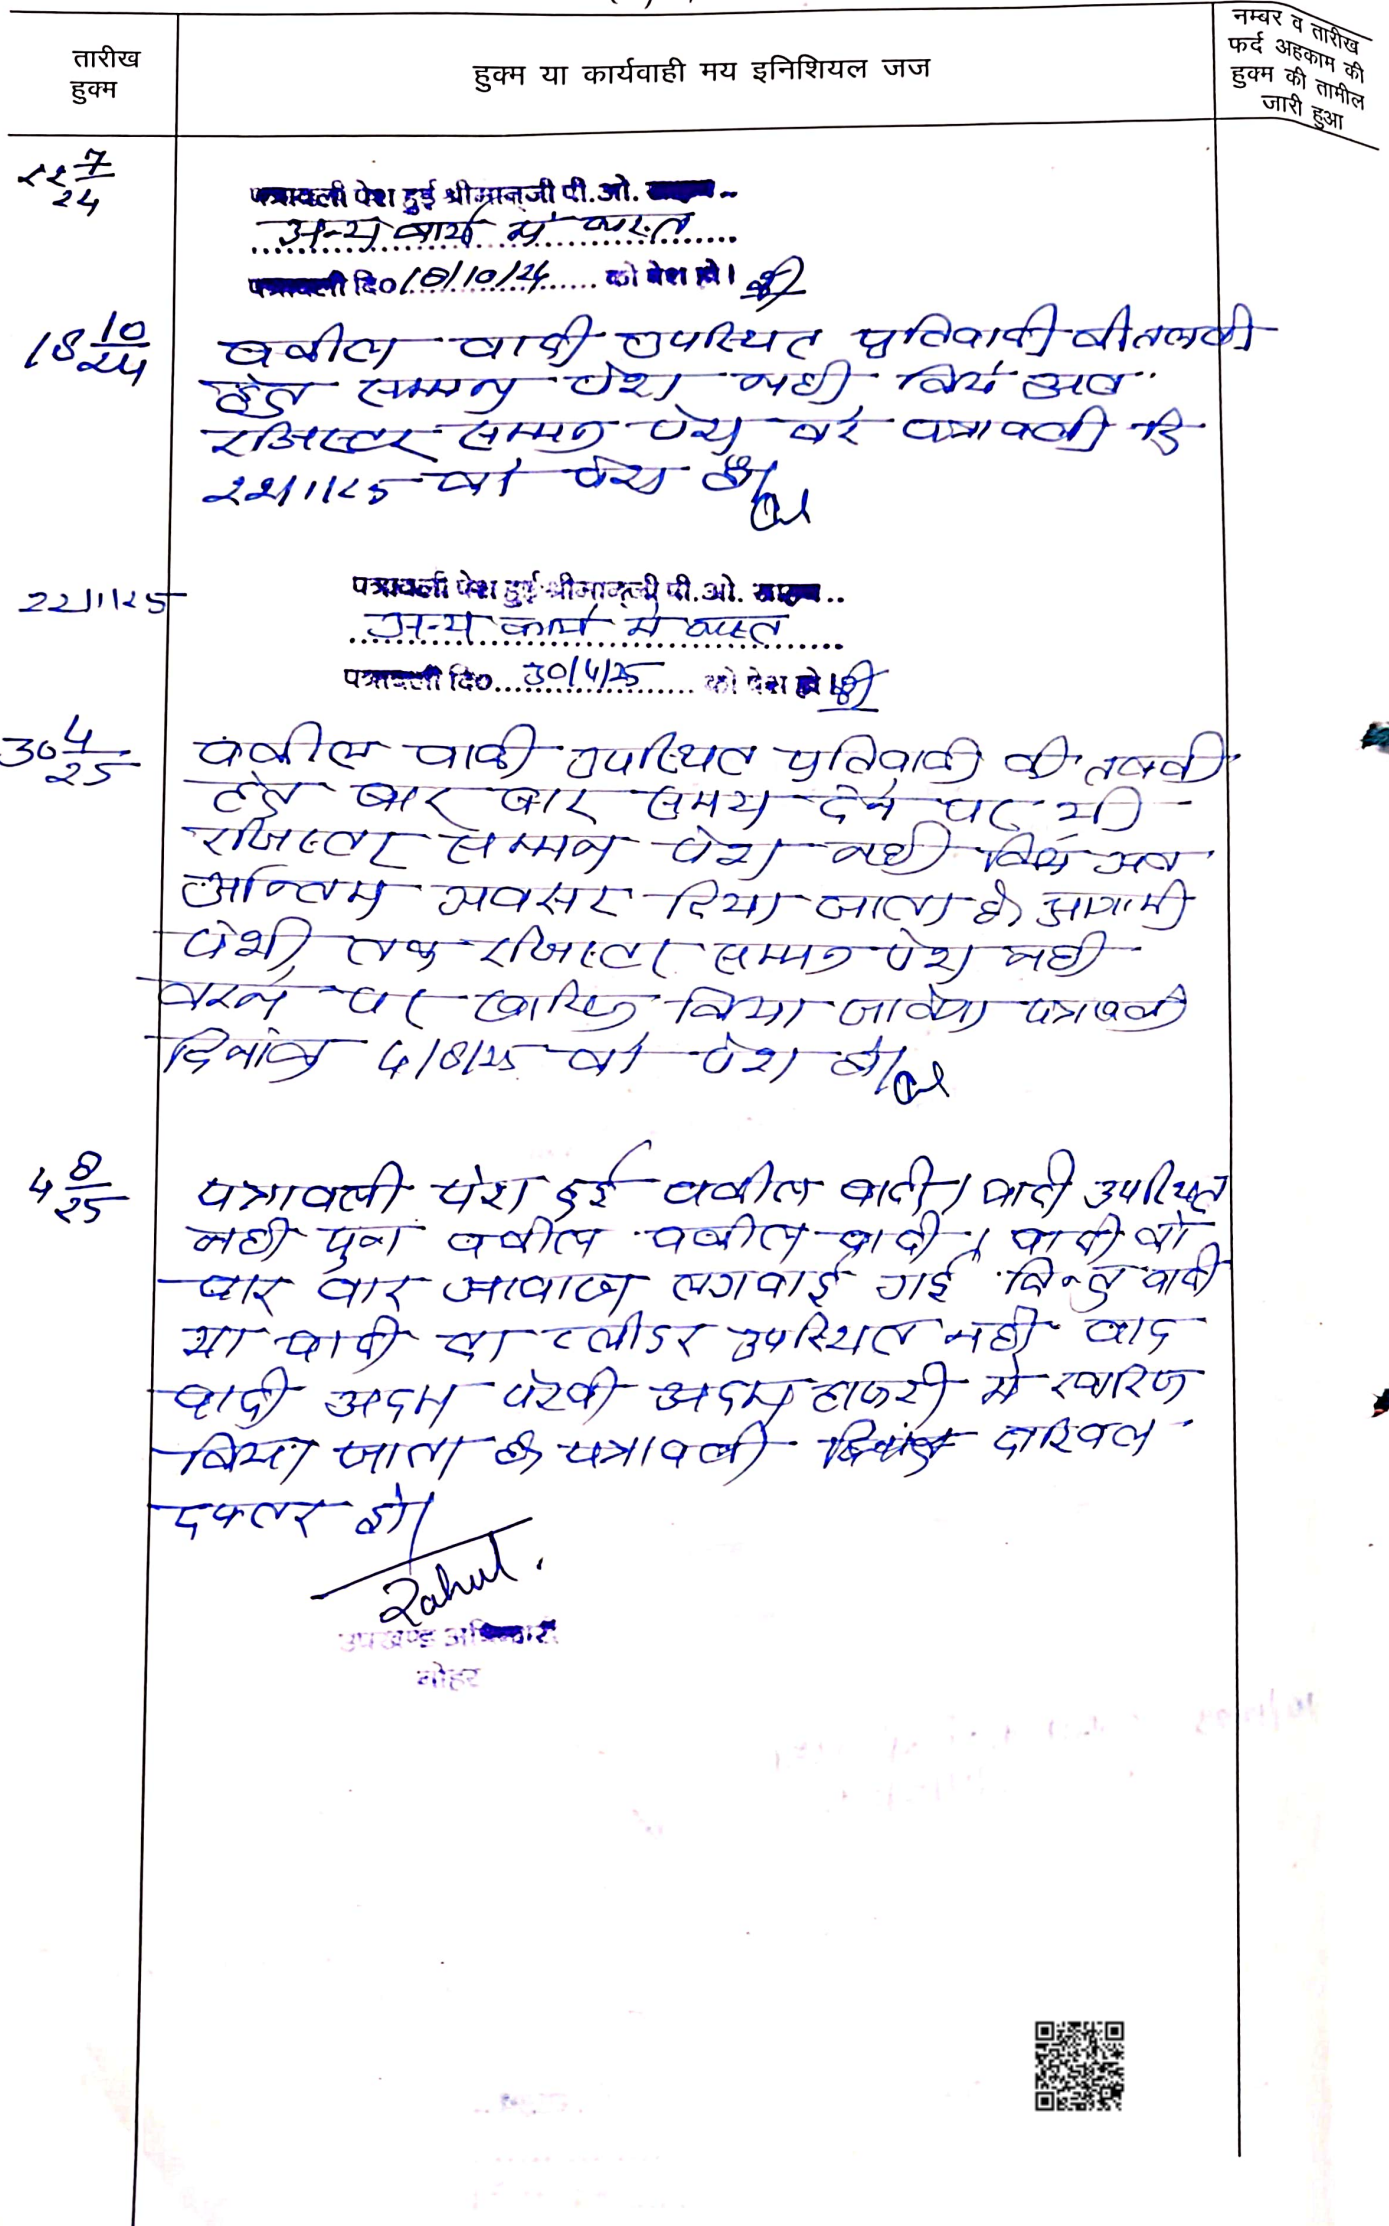 तारीख
हुक्म
हुक्म या कार्यवाही मय इनिशियल जज
नम्बर व तारीख
फर्द अहकाम की
हुक्म की तामील
जारी हुआ
22 7/24
पत्रावली पेश हुई श्रीमान्‌जी पी.ओ. साहब..
अन्य कार्य में व्यस्त
पत्रावली दि० 18/10/24 को पेश हो।
18 10/24
वकील वादी उपस्थित प्रतिवादी की तलबी
हेतु सम्मन पेश नही किये अतः
रजिस्टर सम्मन पेश करे पत्रावली दि
22/1/25 को पेश हो।
22/1/25
पत्रावली पेश हुई श्रीमान्‌जी पी.ओ. साहब..
अन्य कार्य में व्यस्त
पत्रावली दि० 30/4/25 को पेश हो।
30 4/25
वकील वादी उपस्थित प्रतिवादी की तलबी
हेतु बार बार समय देने पर भी
रजिस्टर सम्मन पेश नही किये अतः
अन्तिम अवसर दिया जाता है आगामी
पेशी तक रजिस्टर सम्मन पेश नही
करने पर खारिज किया जावेगा पत्रावली
दिनांक 4/8/25 को पेश हो।
4 8/25
पत्रावली पेश हुई वकील वादी/वादी उपस्थित
नही पुनः वकील वकील वादी/वादी को
बार बार आवाज लगवाई गई किन्तु वादी
या वादी का प्लीडर उपस्थित नही वाद
वादी अदम पैरवी अदम हाजरी में खारिज
किया जाता है पत्रावली दाखिल
दफ्तर हो।
Rahul.
उपखण्ड अधिकारी
नोहर